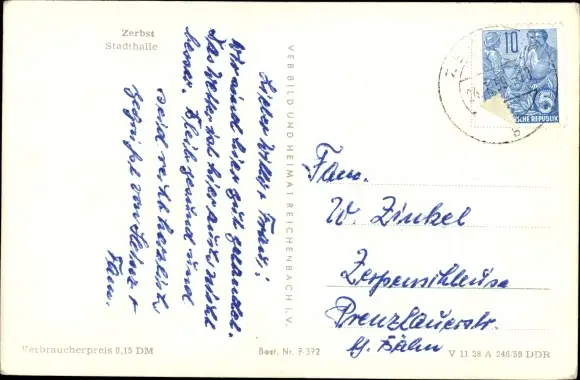 Zerbst
Stadthalle
Lieber Willy + Frau,
wir sind hier gut gelandet.
Das Wetter ist hier auch nicht
besser. Bleibt gesund und
seid recht herzlich
gegrüßt von Heinz +
Fam.
VEB BILD UND HEIMAT REICHENBACH i. V.
10
5
SCHE REPUBLIK
Fam.
W. Zinkel
Zerpenschleuse
Prenzlauerstr.
Verbraucherpreis 0,15 DM
Best. Nr. 7-372
V 11 28 A 246/59 DDR